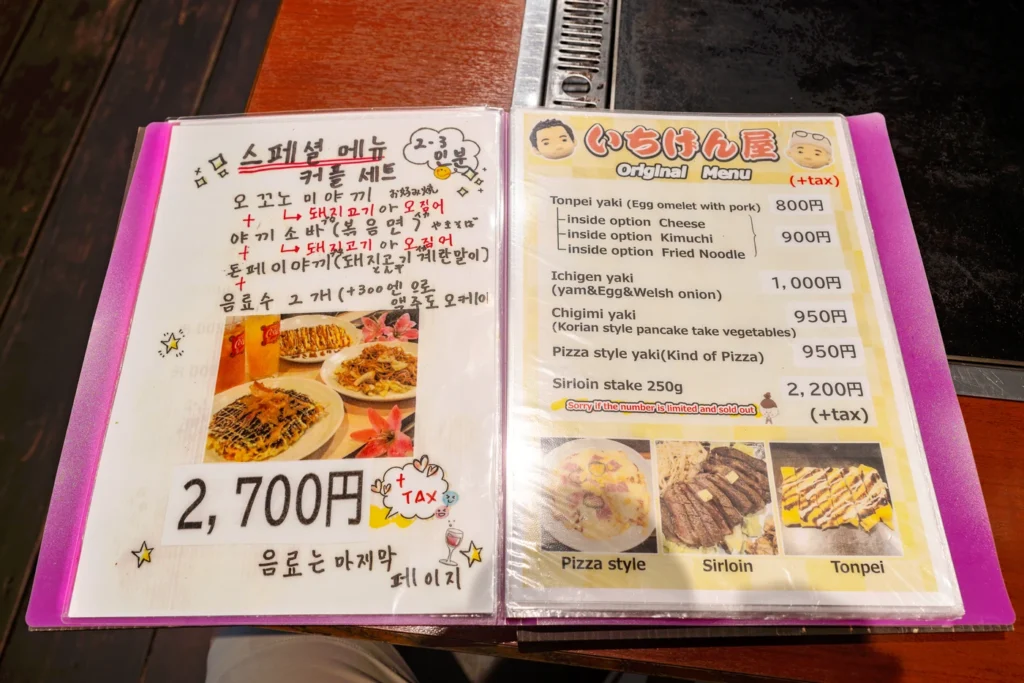 스페셜 메뉴
커플 세트
2-3
인분
오꼬노미야끼 お好み焼
+ ↳ 돼지고기아 오징어
야끼소바(볶음면) やきそば
+ ↳ 돼지고기아 오징어
돈페이야끼(돼지고기 계란말이)
+
음료수 2개(+300엔으로
맥주도 오케이
2,700円
+
TAX
음료는 마지막
페이지
いちげん屋
Original Menu
(+tax)
Tonpei yaki (Egg omelet with pork) 800円
inside option Cheese
inside option Kimuchi 900円
inside option Fried Noodle
Ichigen yaki 1,000円
(yam&Egg&Welsh onion)
Chigimi yaki 950円
(Korian style pancake take vegetables)
Pizza style yaki(Kind of Pizza) 950円
Sirloin stake 250g 2,200円
Sorry if the number is limited and sold out
(+tax)
Pizza style Sirloin Tonpei